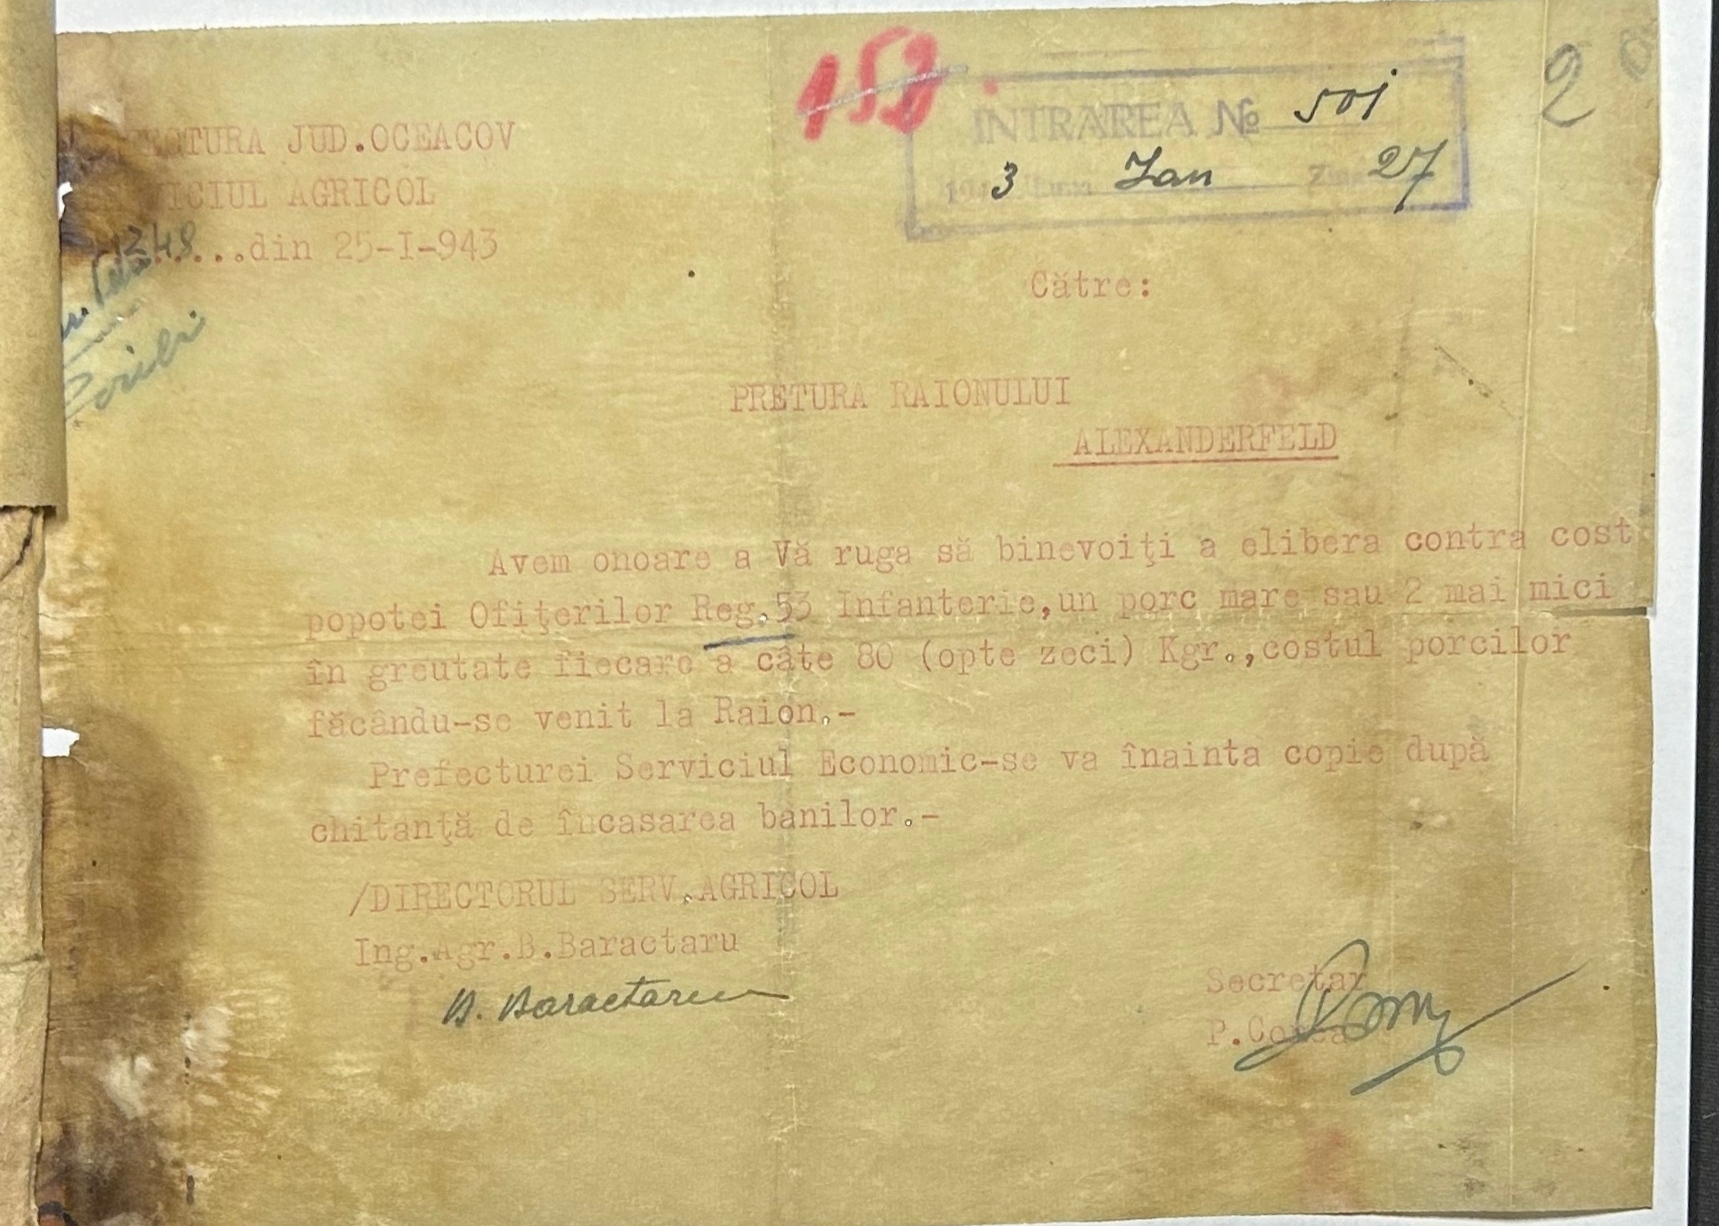 153
INTRAREA № 501
194 3 Luna Ian Ziua 27
2
ECTURA JUD.OCEACOV
VICIUL AGRICOL
...din 25-I-943
Către:
PRETURA RAIONULUI
ALEXANDERFELD
Avem onoare a Vă ruga să binevoiţi a elibera contra cost
popotei Ofiţerilor Reg.53 Infanterie,un porc mare sau 2 mai mici
în greutate fiecare a câte 80 (opte zeci) Kgr.,costul porcilor
făcându-se venit la Raion.-
Prefecturei Serviciul Economic-se va înainta copie după
chitanţă de încasarea banilor.-
/DIRECTORUL SERV.AGRICOL
Ing.Agr.B.Baractaru
B. Baractaru
Secretar